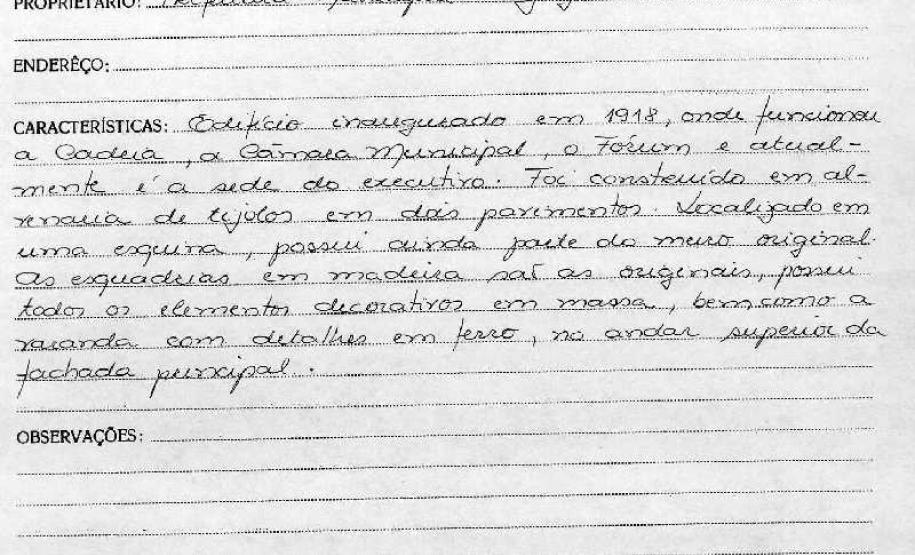 PROPRIETÁRIO:
ENDERÊÇO:
CARACTERÍSTICAS: Edifício inaugurado em 1918, onde funcionou
a Cadeia, a Câmara Municipal, o Fórum e atual-
mente é a sede do executivo. Foi construído em al-
venaria de tijolos em dois pavimentos. Localizado em
uma esquina, possui ainda parte do muro original.
As esquadrias em madeira são as originais, possui
todos os elementos decorativos em massa, bem como a
varanda com detalhes em ferro, no andar superior da
fachada principal.
OBSERVAÇÕES: